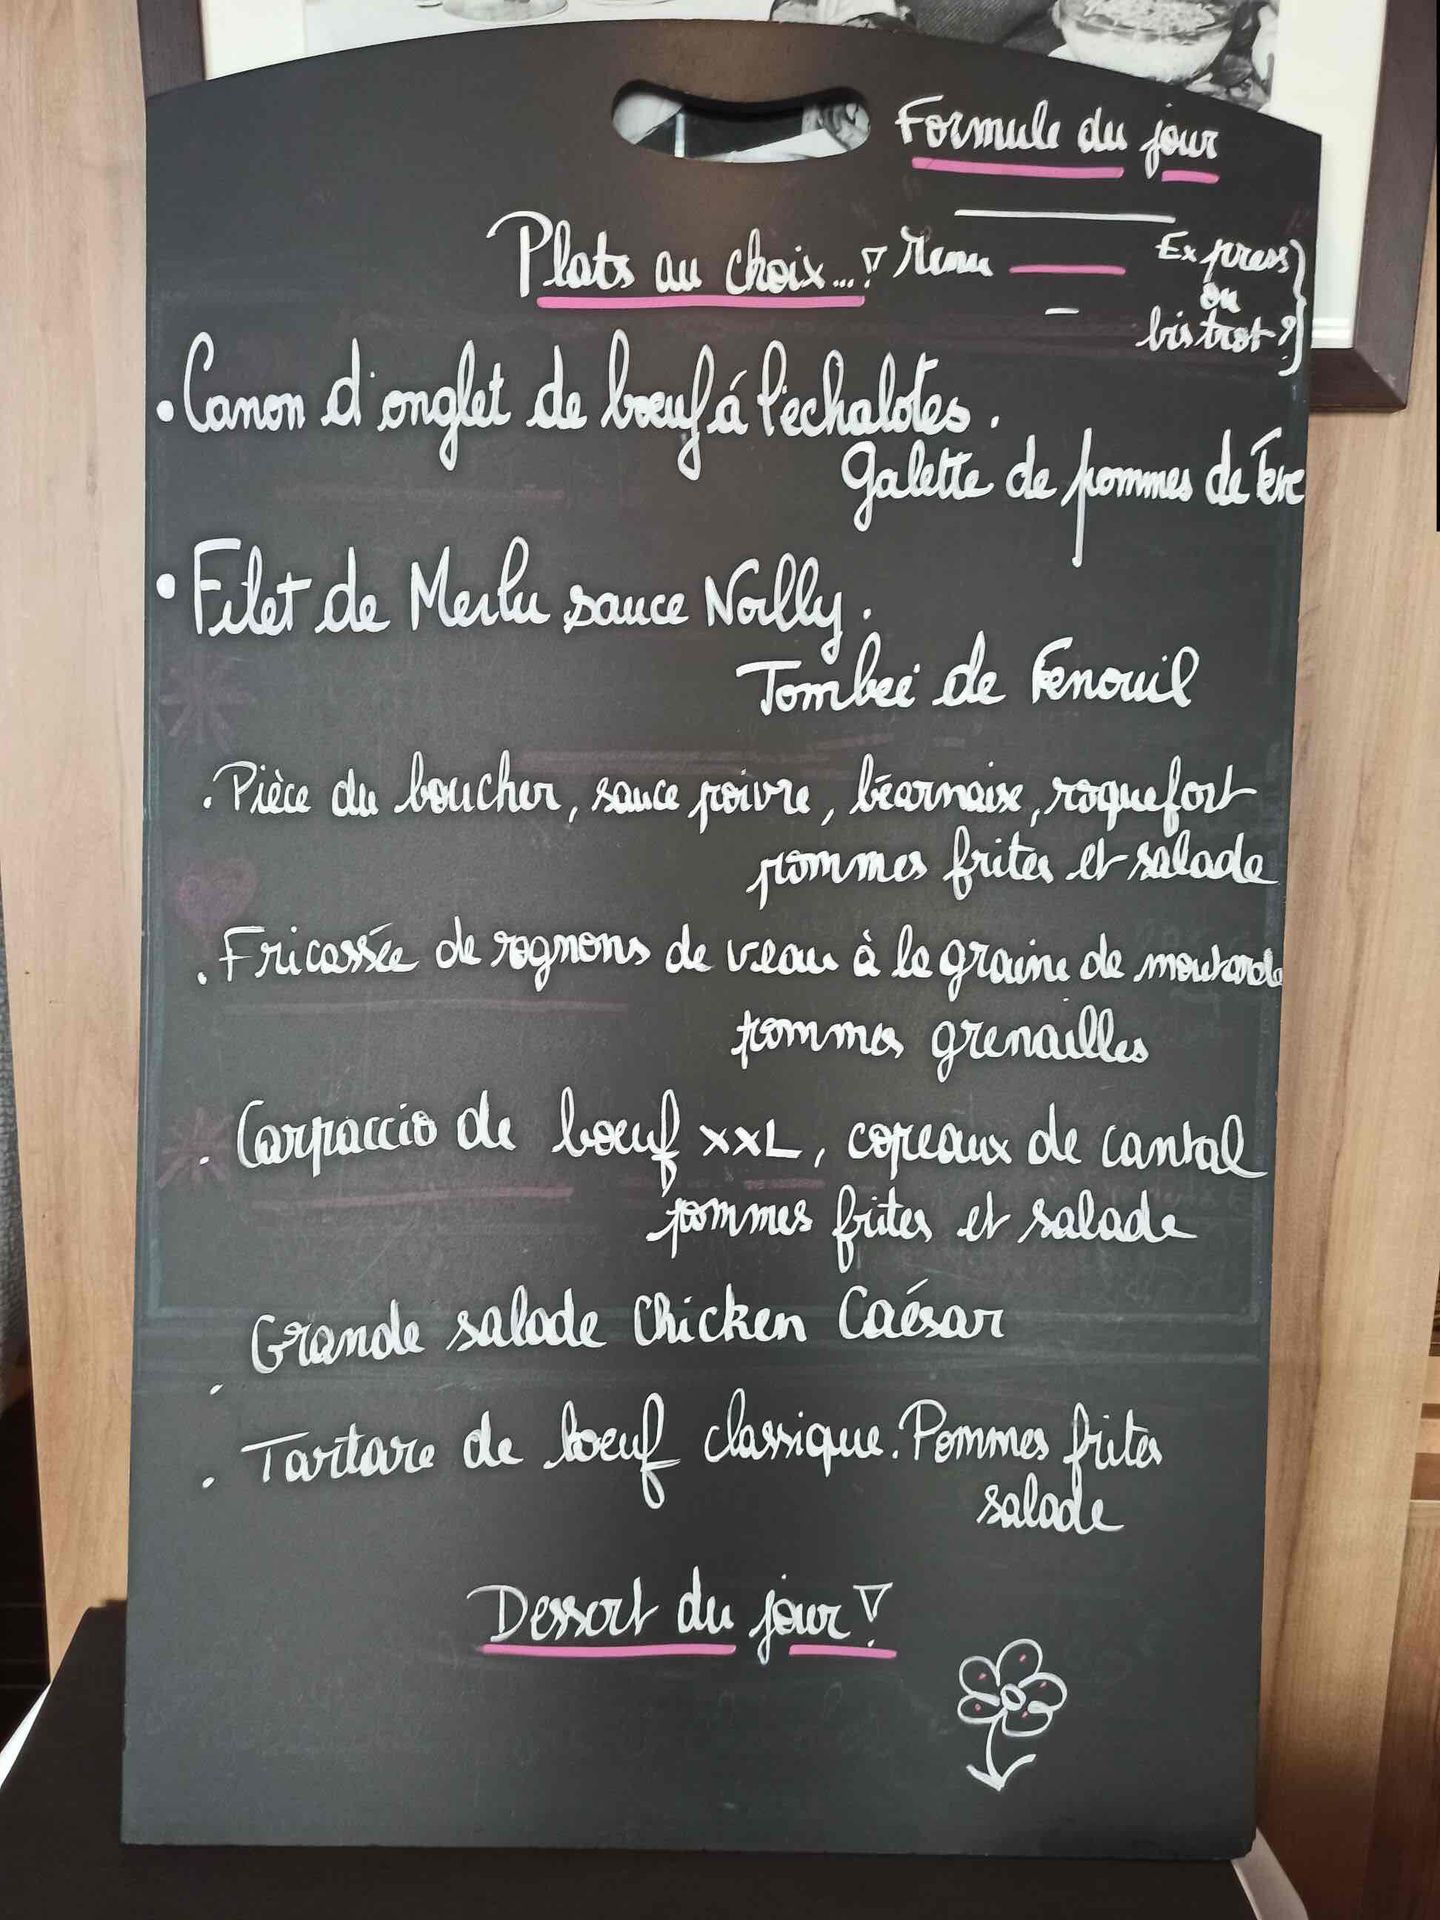 Formule du jour
Plats au choix...! Menu
Express
ou
bistrot?
• Canon d'onglet de bœuf á l'échalotes.
Galette de pommes de Terre
• Filet de Merlu sauce Noilly.
Tombée de Fenouil
. Pièce du boucher, sauce poivre, béarnaise, roquefort
pommes frites et salade
. Fricassée de rognons de veau à la graine de moutarde
pommes grenailles
. Carpaccio de bœuf XXL, copeaux de cantal
pommes frites et salade
. Grande salade Chicken Caésar
. Tartare de bœuf classique. Pommes frites
salade
Dessert du jour!